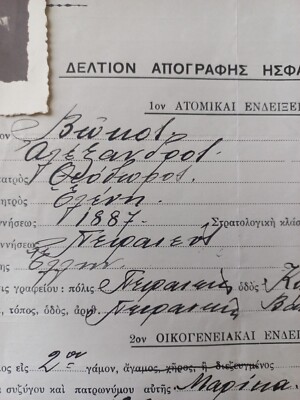 ΔΕΛΤΙΟΝ ΑΠΟΓΡΑΦΗΣ ΗΣΦΑ
1ον ΑΤΟΜΙΚΑΙ ΕΝΔΕΙΞΕΙ
ον Βῶκος
Ἀλέξανδρος.
πατρὸς Θεόδωρος.
μητρὸς Ἑλένη.
ννήσεως 1887. Στρατολογικὴ κλάσ
εννήσεως Πειραιεύς
Ἕλλην.
ις γραφείου: πόλις Πειραιεύς ὁδός
, τόπος, ὁδός, ἀρ Πειραιεύς
2ον ΟΙΚΟΓΕΝΕΙΑΚΑΙ ΕΝΔΕΙ
ος εἰς 2ον γάμον, ἄγαμος, χῆρος, ἢ διεζευγμένος
α συζύγου καὶ πατρωνύμου αὐτῆς Μαρίκα